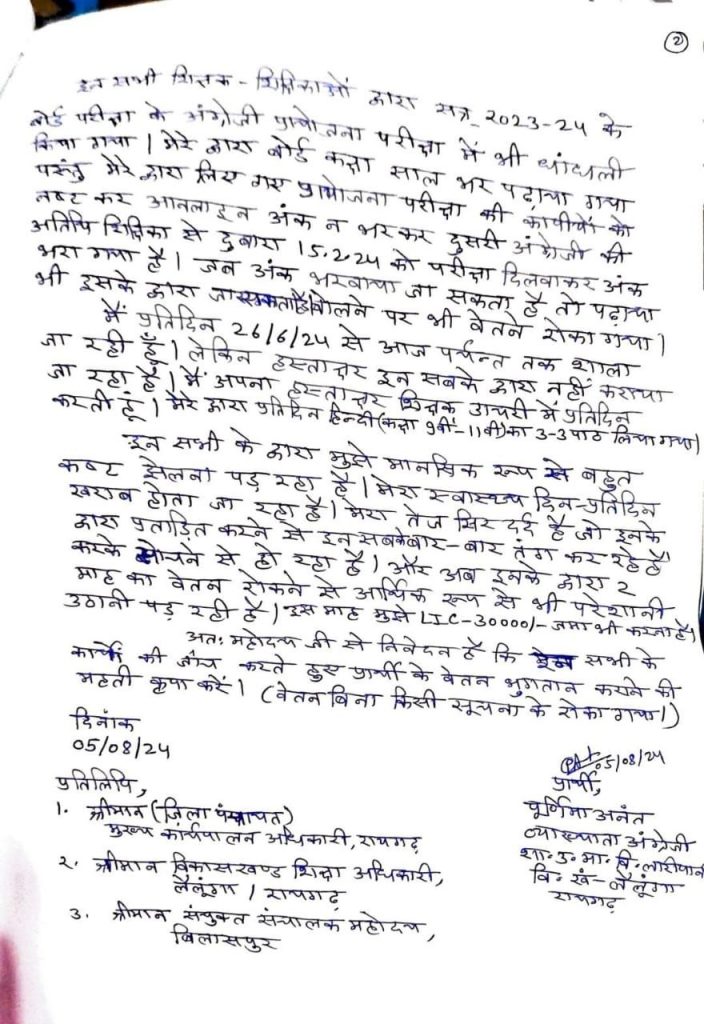 ②
इन सभी शिक्षक - शिक्षिकाओं द्वारा सत्र 2023-24 के
बोर्ड परीक्षा के अंग्रेजी प्रायोजना परीक्षा में भी धांधली
किया गया। मेरे द्वारा बोर्ड कक्षा साल भर पढ़ाया गया
परंतु मेरे द्वारा लिए गए प्रायोजना परीक्षा की कापीयों को
नष्ट कर आनलाइन अंक न भरकर दुसरी अंग्रेजी की
अतिथि शिक्षिका से दुबारा 15.2.24 को परीक्षा दिलवाकर अंक
भरा गया है। जब अंक भरवाया जा सकता है तो पढ़ाया
भी इसके द्वारा जा सकता है। बोलने पर भी वेतन रोका गया।
मैं प्रतिदिन 26/6/24 से आज पर्यन्त तक शाला
जा रही हूँ। लेकिन हस्ताक्षर इन सबके द्वारा नहीं कराया
जा रहा है। मैं अपना हस्ताक्षर शिक्षक डायरी में प्रतिदिन
करती हूं। मेरे द्वारा प्रतिदिन हिन्दी (कक्षा 9वीं-11वीं) का 3-3 पाठ लिया गया।
इन सभी के द्वारा मुझे मानसिक रूप से बहुत
कष्ट झेलना पड़ रहा है। मेरा स्वास्थ्य दिन-प्रतिदिन
खराब होता जा रहा है। मेरा तेज सिर दर्द है जो इनके
द्वारा प्रताड़ित करने से इन सबके बार-बार तंग कर रहे हैं
करके सोचने से हो रहा है। और अब इनके द्वारा 2
माह का वेतन रोकने से आर्थिक रूप से भी परेशानी
उठानी पड़ रही है। इस माह मुझे LIC-30000/- जमा भी करना है।
अतः महोदय जी से निवेदन है कि इन सभी के
कार्यो की जाँच करते हुए प्रार्थी के वेतन भुगतान कराने की
महती कृपा करें। (वेतन बिना किसी सूचना के रोका गया।)
दिनांक
05/08/24
05/08/24
प्रार्थी,
पूर्णिमा अनंत
व्याख्याता अंग्रेजी
शा. उ. मा. वि. लारीपानी
वि. खं- लैलूंगा
रायगढ़
प्रतिलिपि,
1. श्रीमान (जिला पंचायत)
मुख्य कार्यपालन अधिकारी, रायगढ़
2. श्रीमान विकासखण्ड शिक्षा अधिकारी,
लैलूंगा / रायगढ़
3. श्रीमान संयुक्त संचालक महोदय,
बिलासपुर